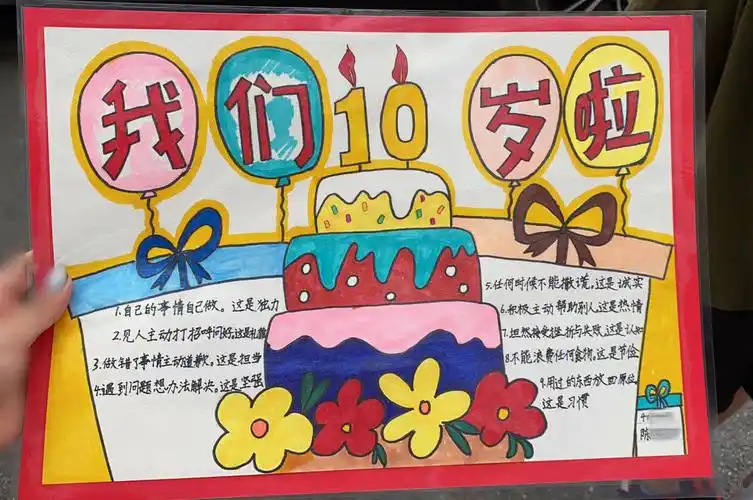 我们10岁啦
1.自己的事情自己做。这是独力
2.见人主动打招呼问好,这是礼貌
3.做错了事情主动道歉。这是担当
4.遇到问题想办法解决。这是坚强
5.任何时候不能撒谎,这是诚实
6.积极主动帮助别人这是热情
7.坦然接受挫折与失败,这是认知
8.不能浪费任何食物,这是节俭
9.用过的东西放回原位
这是习惯
陈